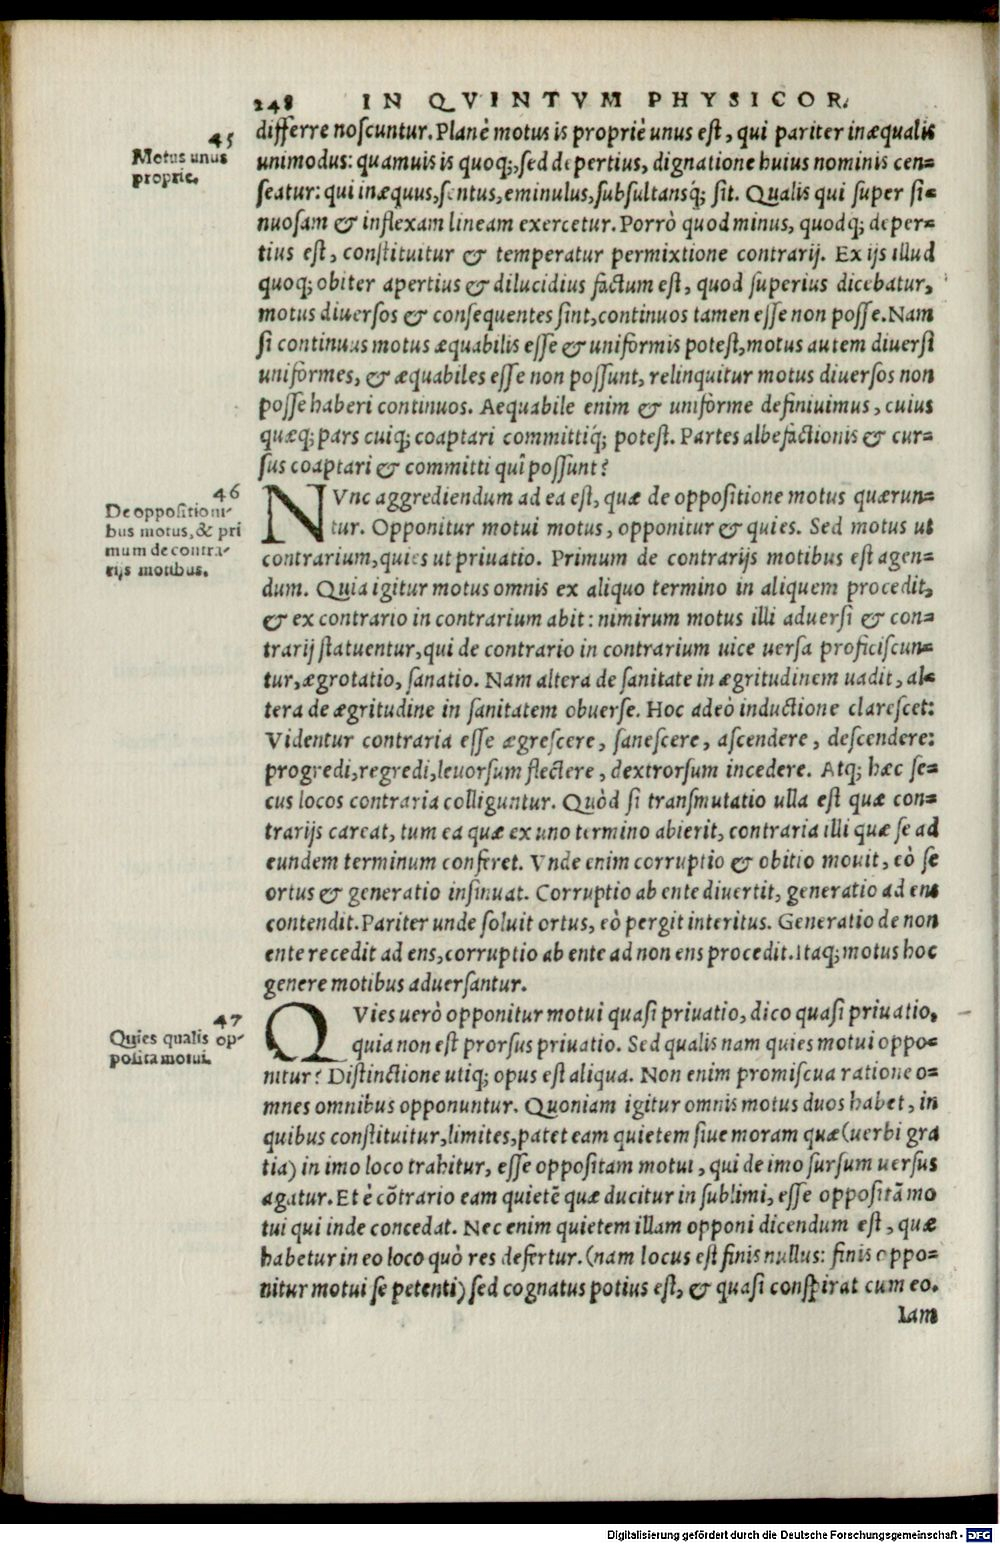 248 IN QVINTVM PHYSICOR.
differre noscuntur. Planè motus is propriè unus est, qui pariter inæqualis
45
Motus unus
proprie.
unimodus: quamuis is quoq;, sed depertius, dignatione huius nominis cen=
seatur: qui inæquus, sentus, eminulus, subsultansq; sit. Qualis qui super si=
nuosam & inflexam lineam exercetur. Porrò quod minus, quodq; deper=
tius est, constituitur & temperatur permixtione contrarij. Ex ijs illud
quoq; obiter apertius & dilucidius factum est, quod superius dicebatur,
motus diuersos & consequentes sint, continuos tamen esse non posse. Nam
si continuus motus æquabilis esse & uniformis potest, motus autem diuersi
uniformes, & æquabiles esse non possunt, relinquitur motus diuersos non
posse haberi continuos. Aequabile enim & uniforme definiuimus, cuius
quæq; pars cuiq; coaptari committiq́; potest. Partes albefactionis & cur=
sus coaptari & committi quî possunt?
46
De oppositioni-
bus motus, & pri
mum de contra-
rijs motibus.
NVnc aggrediendum ad ea est, quæ de oppositione motus quærun=
tur. Opponitur motui motus, opponitur & quies. Sed motus ut
contrarium, quies ut priuatio. Primum de contrarijs motibus est agen=
dum. Quia igitur motus omnis ex aliquo termino in aliquem procedit,
& ex contrario in contrarium abit: nimirum motus illi aduersi & con=
trarij statuentur, qui de contrario in contrarium uice uersa proficiscun=
tur, ægrotatio, sanatio. Nam altera de sanitate in ægritudinem uadit, al=
tera de ægritudine in sanitatem obuerse. Hoc adeò inductione clarescet:
Videntur contraria esse ægrescere, sanescere, ascendere, descendere:
progredi, regredi, leuorsum flectere, dextrorsum incedere. Atq; hæc se=
cus locos contraria colliguntur. Quòd si transmutatio ulla est quæ con=
trarijs careat, tum ea quæ ex uno termino abierit, contraria illi quæ se ad
eundem terminum conferet. Vnde enim corruptio & obitio mouit, eò se
ortus & generatio insinuat. Corruptio ab ente diuertit, generatio ad ens
contendit. Pariter unde soluit ortus, eò pergit interitus. Generatio de non
ente recedit ad ens, corruptio ab ente ad non ens procedit. Itaq; motus hoc
genere motibus aduersantur.
47
Quies qualis op-
posita motui.
QVies uerò opponitur motui quasi priuatio, dico quasi priuatio,
quia non est prorsus priuatio. Sed qualis nam quies motui oppo=
nitur? Distinctione utiq; opus est aliqua. Non enim promiscua ratione o=
mnes omnibus opponuntur. Quoniam igitur omnis motus duos habet, in
quibus constituitur, limites, patet eam quietem siue moram quæ (uerbi gra
tia) in imo loco trahitur, esse oppositam motui, qui de imo sursum uersus
agatur. Et è cõtrario eam quietẽ quæ ducitur in sublimi, esse oppositã mo
tui qui inde concedat. Nec enim quietem illam opponi dicendum est, quæ
habetur in eo loco quò res defertur. (nam locus est finis nullus: finis oppo=
nitur motui se petenti) sed cognatus potius est, & quasi conspirat cum eo.
Iam
Digitalisierung gefördert durch die Deutsche Forschungsgemeinschaft - DFG